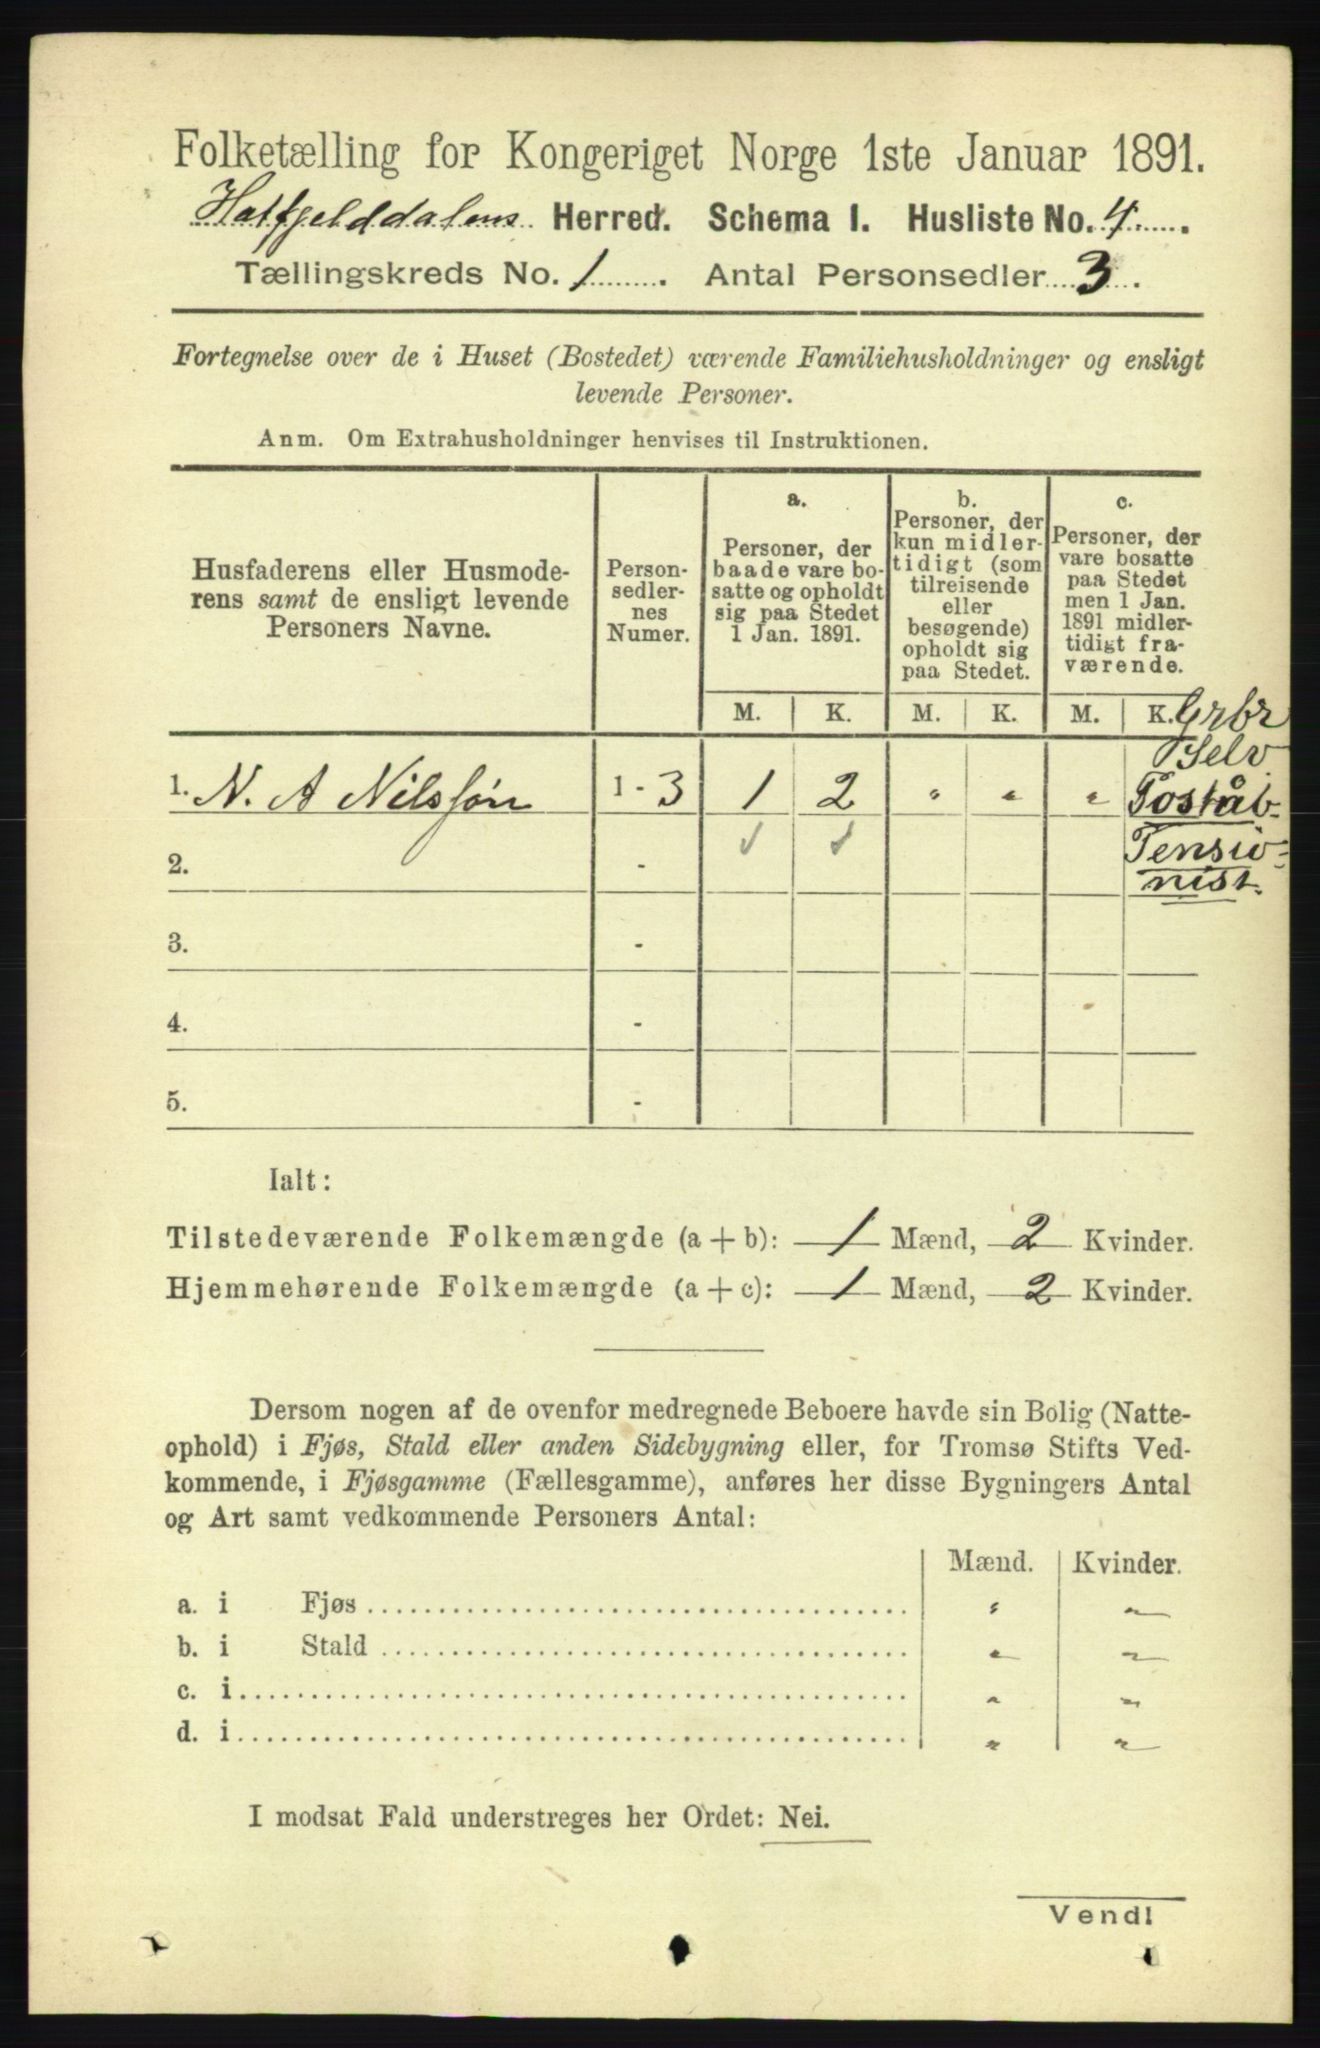 Folketælling for Kongeriget Norge 1ste Januar 1891.
Hatfjelddalens Herred. Schema I. Husliste No. 4
Tællingskreds No. 1. Antal Personsedler 3.
Fortegnelse over de i Huset (Bostedet) værende Familiehusholdninger og ensligt
levende Personer.
Anm. Om Extrahusholdninger henvises til Instruktionen.
Husfaderens eller Husmode-
rens samt de ensligt levende
Personers Navne.
Person-
sedler-
nes
Numer.
a.
Personer, der
baade vare bo-
satte og opholdt
sig paa Stedet
1 Jan. 1891.
b.
Personer, der
kun midler-
tidigt (som
tilreisende
eller
besøgende)
opholdt sig
paa Stedet.
c.
Personer, der
vare bosatte
paa Stedet
men 1 Jan.
1891 midler-
tidigt fra-
værende.
M. K. M. K. M. K.
Grbr
Selv
Poståb-
Pensio-
nist.
1. N. A Nilssøn 1-3 1 2 " " "
2. -
3. -
4. -
5. -
Ialt:
Tilstedeværende Folkemængde (a + b): 1 Mænd, 2 Kvinder.
Hjemmehørende Folkemængde (a + c): 1 Mænd, 2 Kvinder.
Dersom nogen af de ovenfor medregnede Beboere havde sin Bolig (Natte-
ophold) i Fjøs, Stald eller anden Sidebygning eller, for Tromsø Stifts Ved-
kommende, i Fjøsgamme (Fællesgamme), anføres her disse Bygningers Antal
og Art samt vedkommende Personers Antal:
Mænd. Kvinder.
a. i Fjøs " "
b. i Stald " "
c. i " "
d. i " "
I modsat Fald understreges her Ordet: Nei.
Vend!